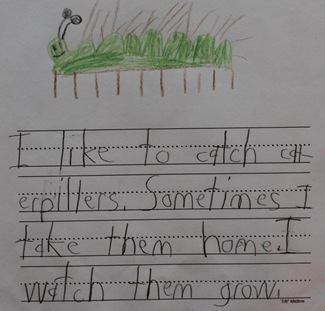 I like to catch cat-
erpillers. Sometimes I
take them home. I
watch them grow.